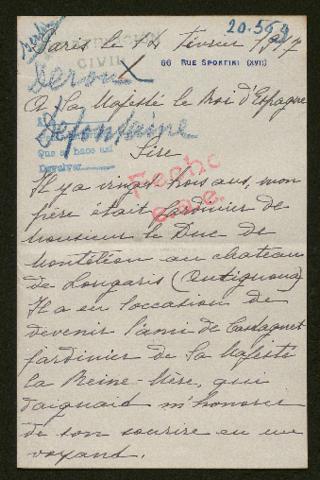 20.569
Paris le 12 Février 1917
CIVIL
66 Rue Spontini (XVI)
Deroux
A Sa Majesté le Roi d'Espagne
Defontaine
Que se hace
Sire
Devolver
Fecho
Il y a vingt trois ans, mon
père était Jardinier de
Monsieur le Duc de
au chateau
de Longaris (
Il a eu l'occasion de
devenir l'ami de Castagnet
jardinier de Sa Majesté
la Reine-Mère, qui
daignait m'honorer
de son sourire en me
voyant.